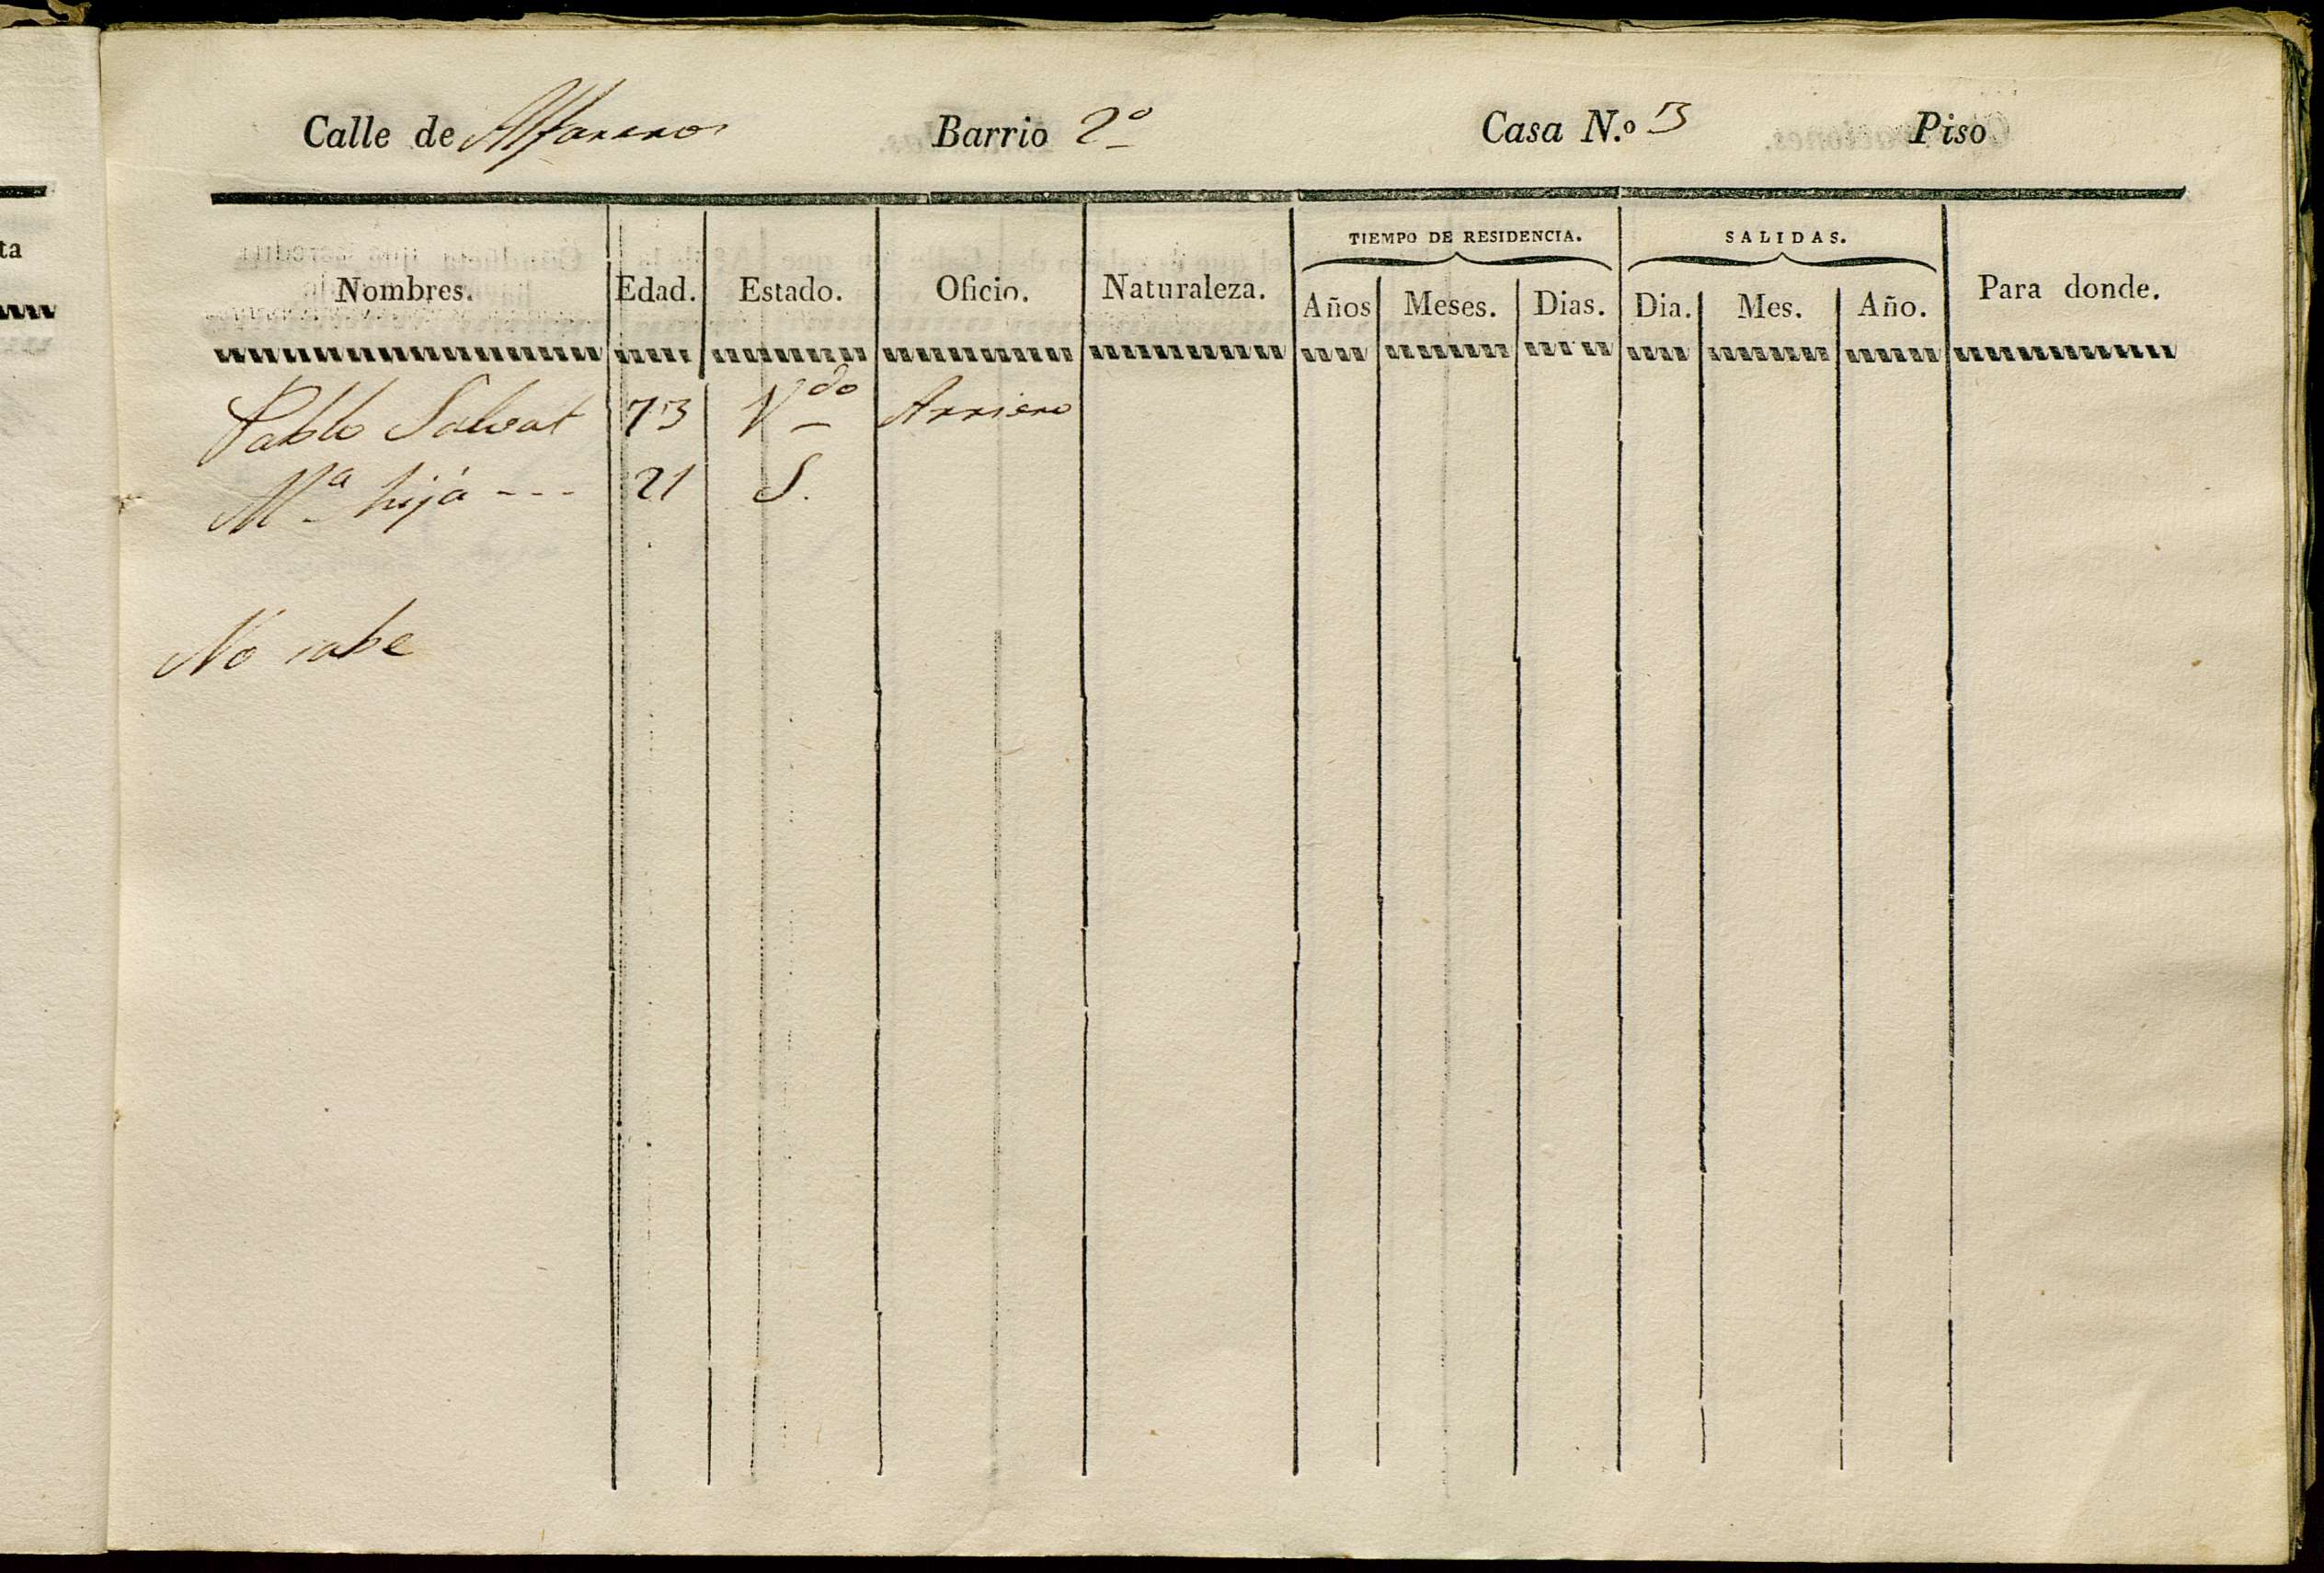 Calle de Alfareros Barrio 2º Casa N.º 3 Piso
TIEMPO DE RESIDENCIA. SALIDAS.
Nombres. Edad. Estado. Oficio. Naturaleza. Años Meses. Dias. Dia. Mes. Año. Para donde.
Pablo Salvat 73 Vdo Arriero
Mª hija --- 21 S.
No sabe
ta